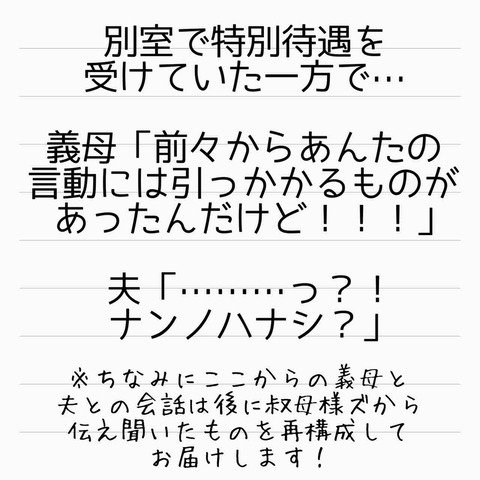 別室で特別待遇を
受けていた一方で…
義母「前々からあんたの
言動には引っかかるものが
あったんだけど！！！」
夫「………っ？！
ナンノハナシ？」
※ちなみにここからの義母と
夫との会話は後に叔母様ズから
伝え聞いたものを再構成して
お届けします！